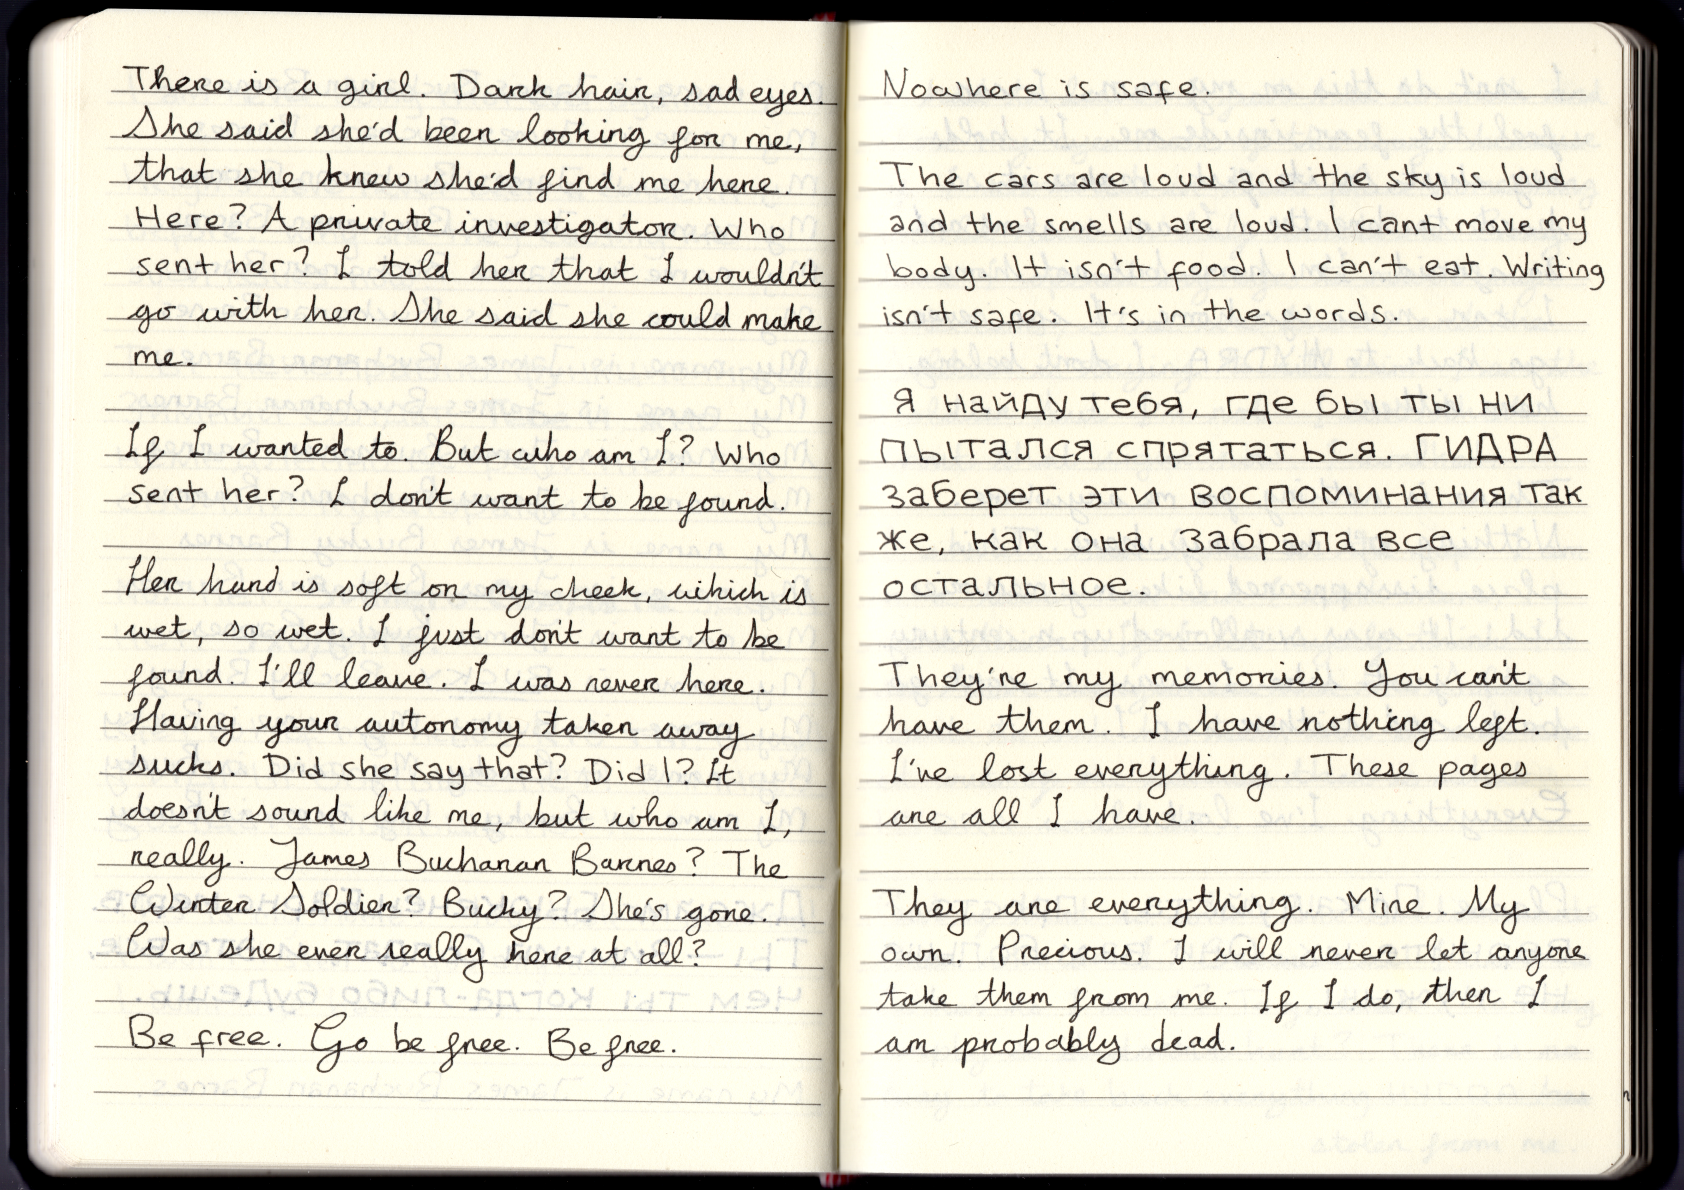 There is a girl. Dark hair, sad eyes.
She said she'd been looking for me,
that she knew she'd find me here.
Here? A private investigator. Who
sent her? I told her that I wouldn't
go with her. She said she could make
me.
If I wanted to. But who am I? Who
sent her? I don't want to be found.
Her hand is soft on my cheek, which is
wet, so wet. I just don't want to be
found. I'll leave. I was never here.
Having your autonomy taken away
sucks. Did she say that? Did I? It
doesn't sound like me, but who am I,
really. James Buchanan Barnes? The
Winter Soldier? Bucky? She's gone.
Was she ever really here at all?
Be free. Go be free. Be free.
Nowhere is safe.
The cars are loud and the sky is loud
and the smells are loud. I cant move my
body. It isn't food. I can't eat. Writing
isn't safe. It's in the words.
Я найду тебя, где бы ты ни
пытался спрятаться. ГИДРА
заберет эти воспоминания так
же, как она забрала все
остальное.
They're my memories. You can't
have them. I have nothing left.
I've lost everything. These pages
are all I have.
They are everything. Mine. My
own. Precious. I will never let anyone
take them from me. If I do, then I
am probably dead.